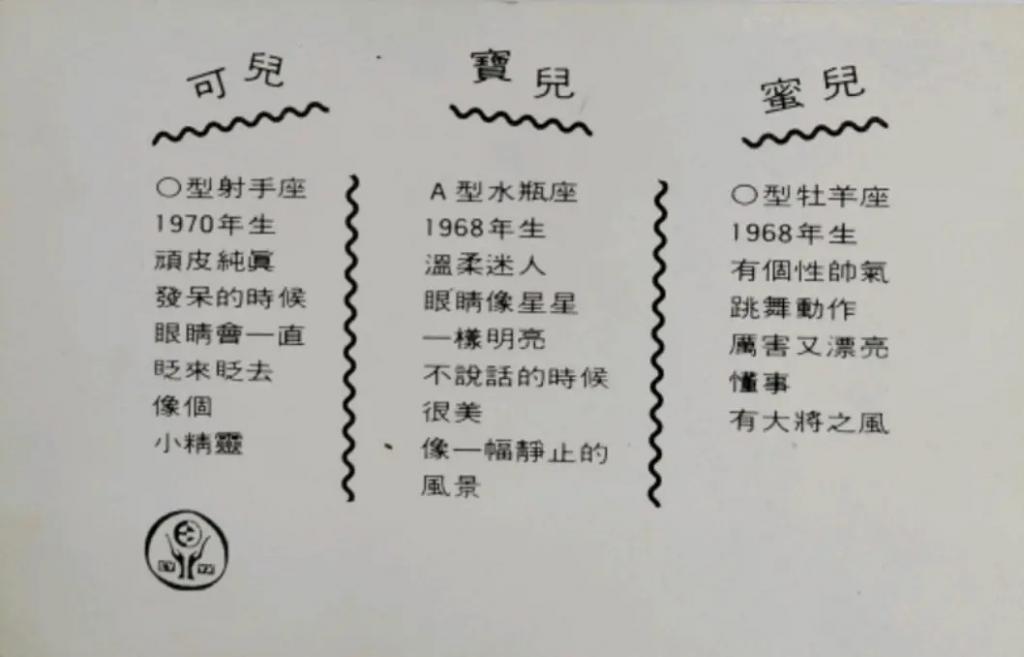 可兒
〇型射手座
1970年生
頑皮純眞
發呆的時候
眼睛會一直
眨來眨去
像個
小精靈
寶兒
A型水瓶座
1968年生
溫柔迷人
眼睛像星星
一樣明亮
不說話的時候
很美
像一幅靜止的
風景
蜜兒
〇型牡羊座
1968年生
有個性帥氣
跳舞動作
厲害又漂亮
懂事
有大將之風